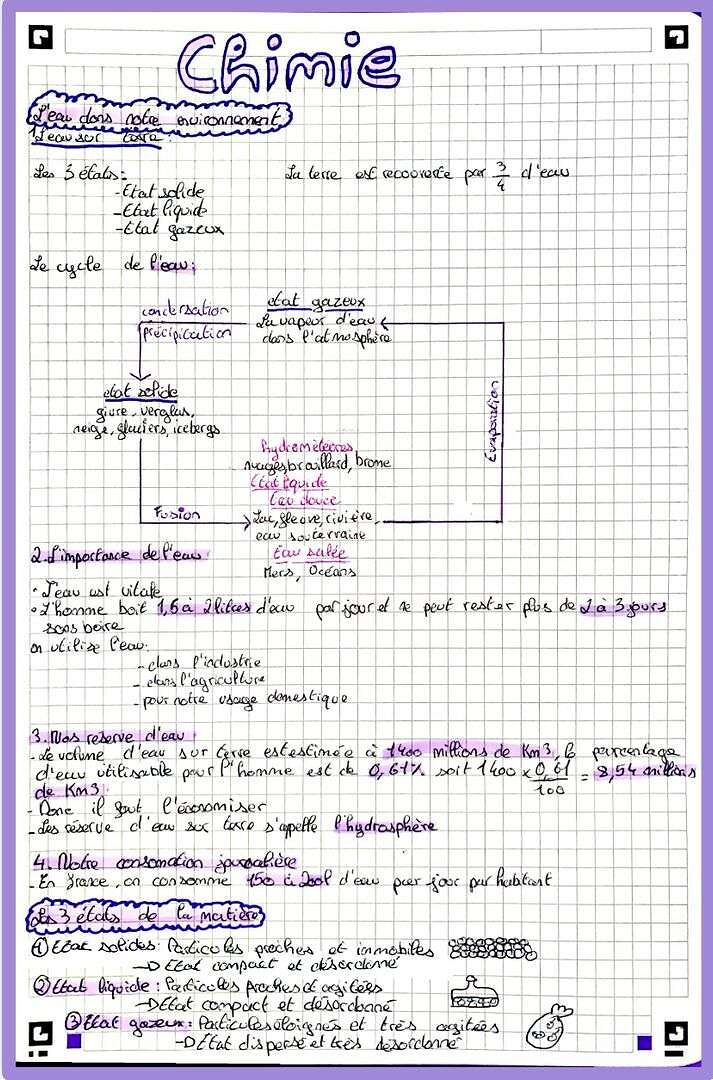 Chimie
L'eau dans notre environnement
1. L'eau sur terre :
Les 3 états :
La terre est recouverte par 3/4 d'eau
-Etat solide
-Etat liquide
-Etat gazeux
Le cycle de l'eau :
condensation
précipitation
etat gazeux
La vapeur d'eau
dans l'atmosphère
etat solide
givre, verglas,
neige, glaciers, icebergs
Evaporation
hydrométéores
nuages, brouillard, brome
Etat liquide
Eau douce
Fusion
Lac, fleuve, rivière,
eau souterraine
Eau salée
Mers, Océans
2. L'importance de l'eau :
• L'eau est vitale
• L'homme boit 1,5 à 2 litres d'eau par jour et ne peut rester plus de 2 à 3 jours
sans boire
on utilise l'eau :
- dans l'industrie
- dans l'agriculture
- pour notre usage domestique
3. Nos reserve d'eau :
- Le volume d'eau sur terre est estimée à 1400 millions de Km3, le percentage
d'eau utilisable pour l'homme est de 0,61% soit 1400 × 0,61/100 = 8,54 millions
de Km3
- Donc il faut l'économiser
- Les réserve d'eau sur terre s'appelle l'hydrosphère
4. Notre consomation journalière
- En france, on consomme 150 à 200l d'eau par jour par habitant
Les 3 états de la matière
① Etat solides : Particules proches et immobiles
→ Etat compact et désordonné
② Etat liquide : Particules proches et agitées
→ Etat compact et désordonné
③ Etat gazeux : Particules éloignés et très agitées
→ Etat dispersé et très désordonné